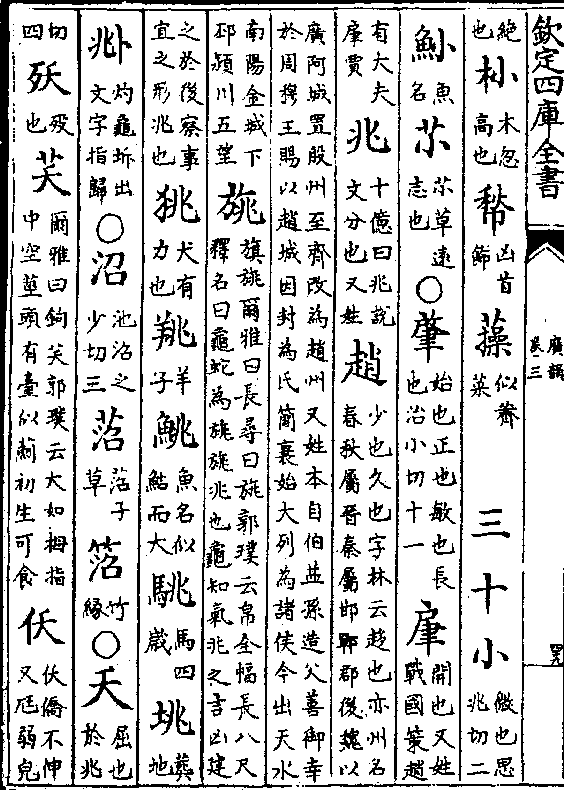 欽定四庫全書
廣韻
卷三
絶也朩木忽高也𢄼凶首飾薻似薺菜
三十小微也思兆切二
䱑魚名䒕䒕草遠志也○肇始也正也敏也長也治小切十一肁開也又姓戰國策趙
有大夫肁賈兆十億曰兆說文分也又姓趙少也久也字林云趍也亦州名春秋屬晉秦屬邯鄲郡後魏以
廣阿城置殷州至齊改為趙州又姓本自伯益孫造父善御幸於周穆王賜以趙城因封為氏簡襄始大列為諸侯今出天水
南陽金城下邳潁川五望旐旗旐爾雅曰長尋曰旐郭璞云帛全幅長八尺釋名曰龜蛇為旐旐兆也龜知氣兆之吉凶建
之於後察事宜之形兆也狣犬有力也羪羊子鮡魚名似鮎而大駣馬四歲垗葬地
𠧞灼龜坼出文字指歸○沼池沼之少切三菬菬子草䈃竹緣○夭屈也於兆
切四殀歿也芺爾雅曰鉤芺郭璞云大如拇指中空莖頭有臺似薊初生可食仸仸僑不伸又尫弱皃